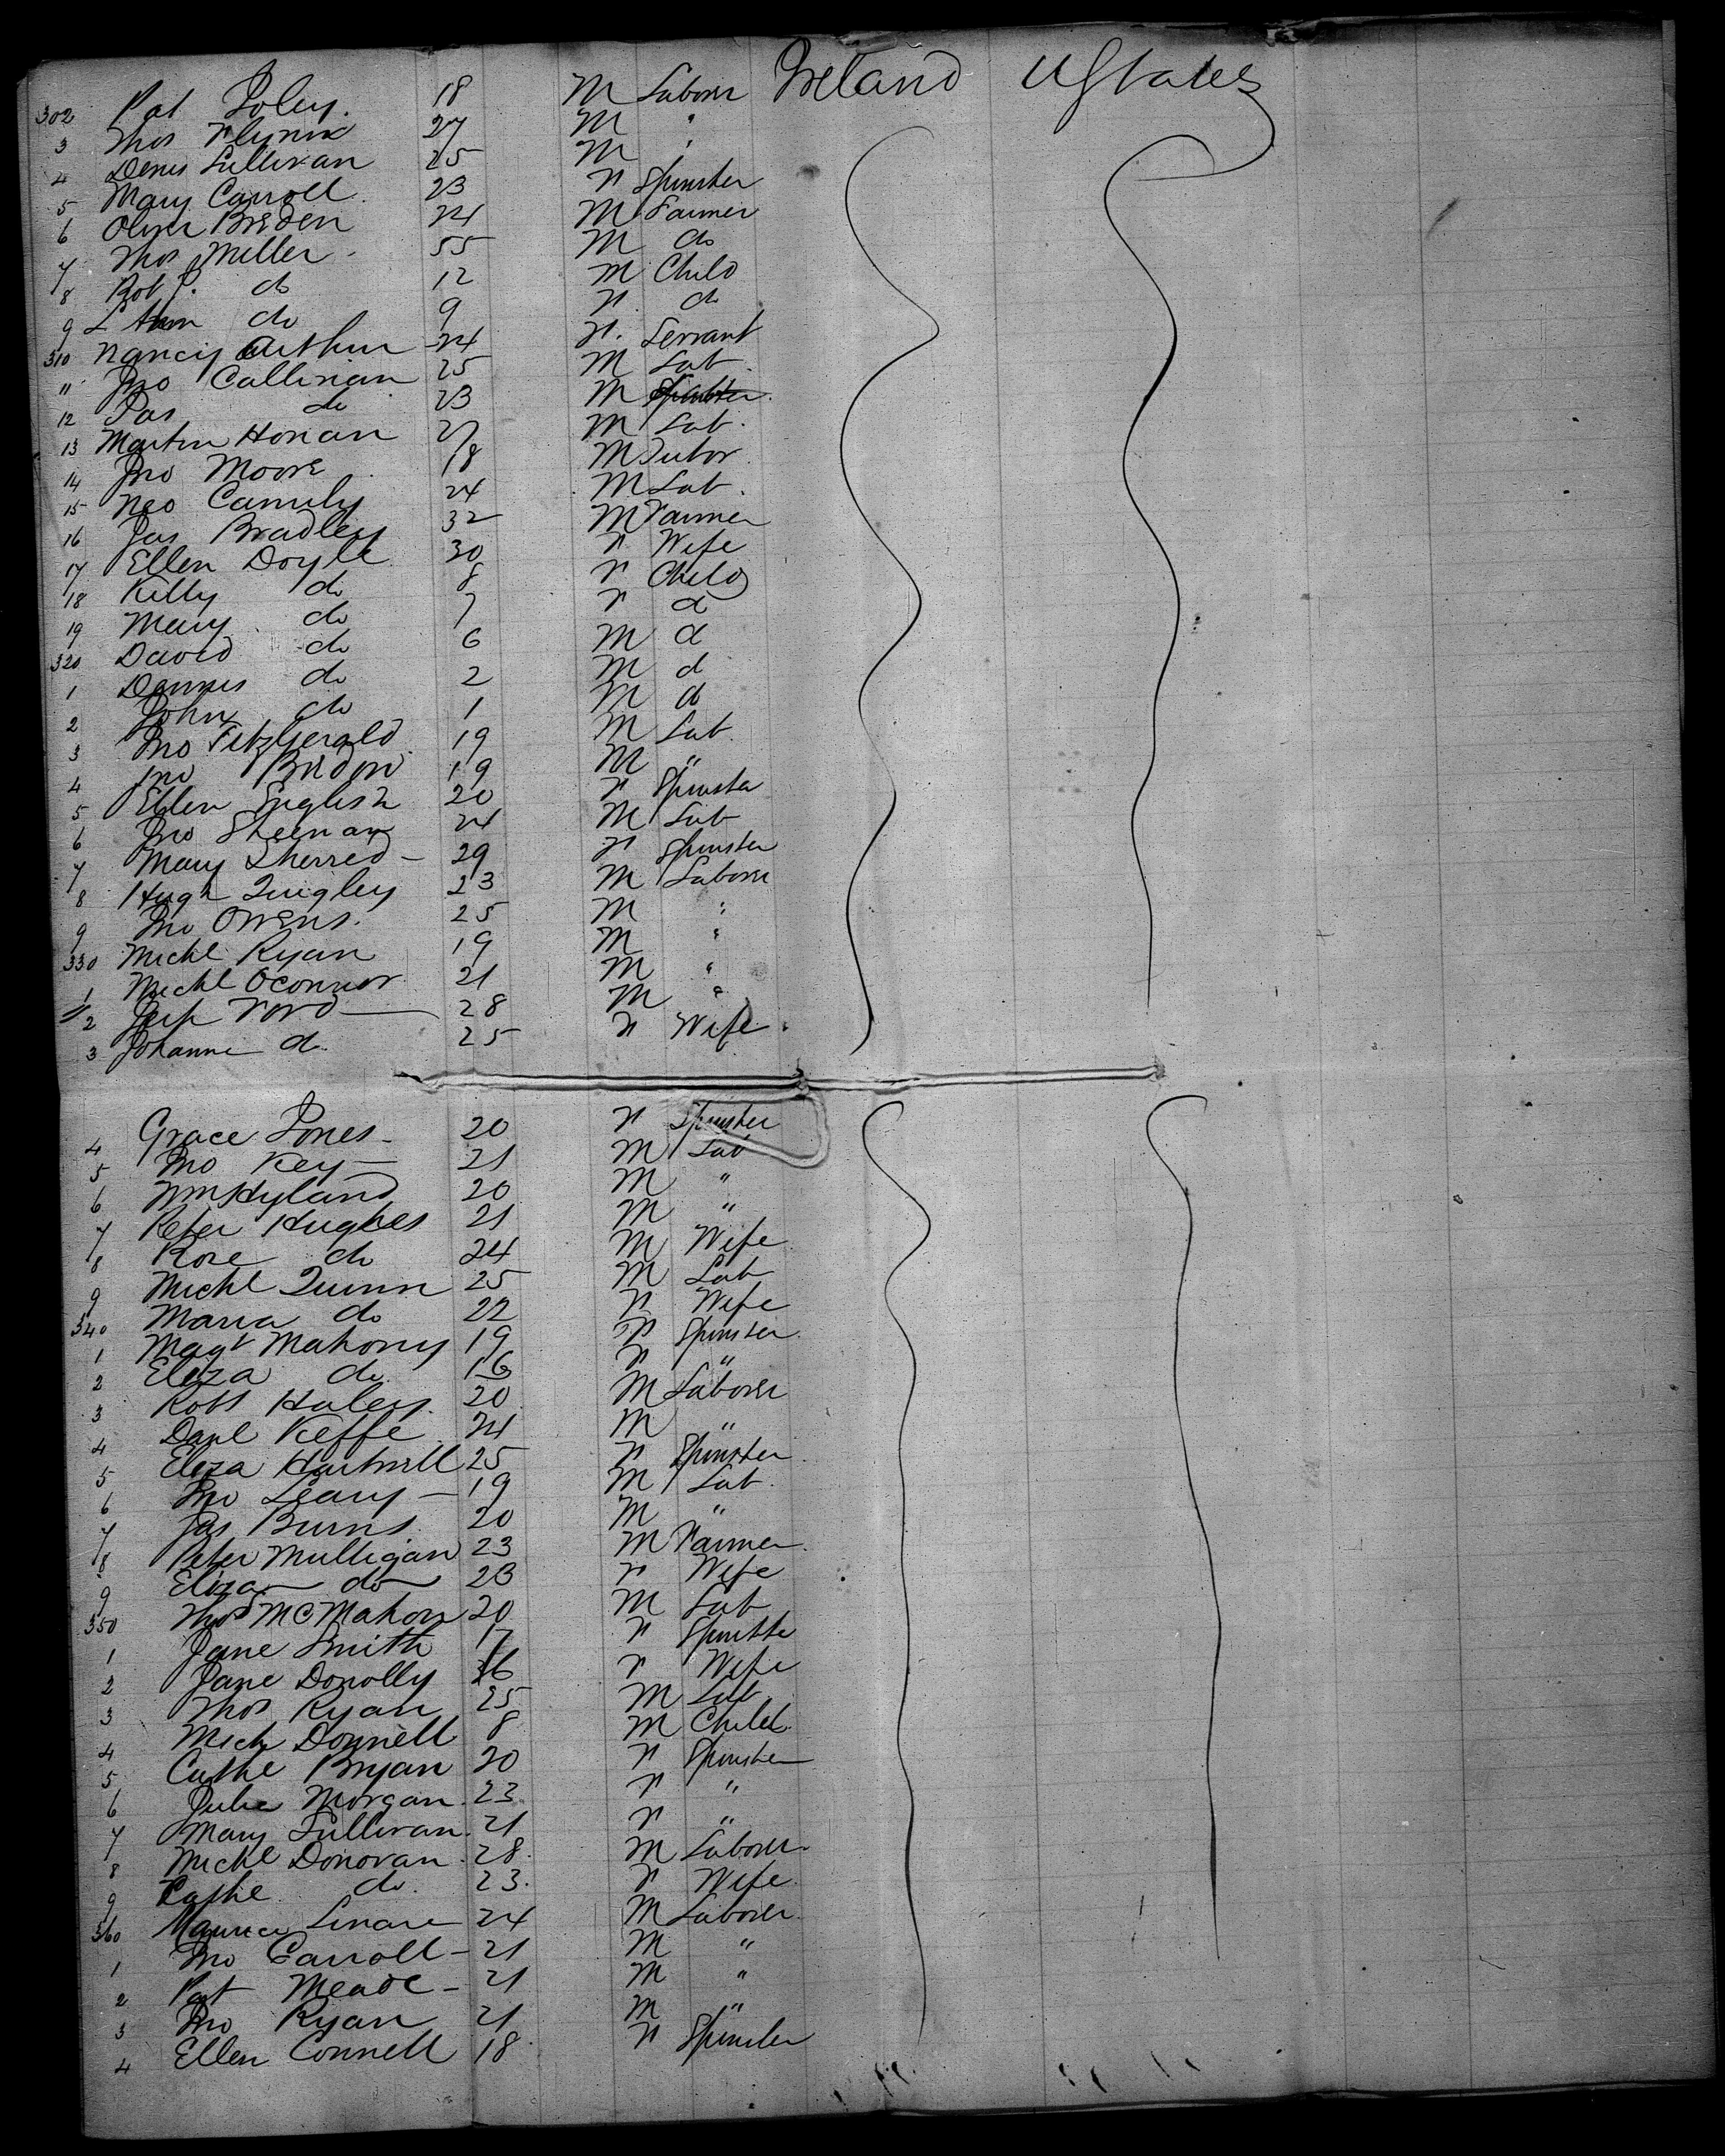 302 Pat Foley. 18 M Laborer Ireland UStates
3 Thos Flynn 27 M "
4 Denis Sullivan 25 M "
5 Mary Carroll. 23 F Spinster
6 Oliver Breden 24 M Farmer
7 Thos Miller 55 M do
8 Robt do 12 M Child
9 do 9 F do
310 Nancy Arthur 24 F. Servant
11 Jno Callinan 25 M Lab.
12 Pat do 23 M
13 Martin Honan 27 M Lab.
14 Jno Moore 18 M Tutor
15 24 M Lab.
16 Jas Bradley 32 M Farmer
17 Ellen Doyle 30 F Wife
18 Kitty do 8 F Child
19 Mary do 7 F d
320 David do 6 M d
1 Dennis do 2 M d
2 John do 1 M do
3 Jno Fitzgerald 19 M Lab.
4 Jno Breden 19 M "
5 Ellen English 20 F Spinster
6 Jno Sheenan 24 M Lab
7 Mary Sherred - 29 F Spinster
8 Hugh Quigley 23 M Laborer
9 Jno Owens. 25 M "
330 Michl Ryan 19 M "
1 Michl Oconnor 21 M "
2 Ford 28 M "
3 Johanna do 25 F Wife
4 Grace Jones - 20 F Spinster
5 Jno Key - 21 M Lab
6 Wm Hyland 20 M "
7 Peter Hughes 21 M "
8 Rose do 24 M Wife
9 Michl Quinn 25 M Lab
340 Maria do 22 F Wife
1 Magt Mahony 19 F Spinster
2 Eliza do 16 F "
3 Robt Haley. 20 M Laborer
4 Danl Keffe 24 M "
5 Eliza Hartnell 25 F Spinster
6 Jno Leary - 19 M Lab.
7 Jas Burns 20 M "
8 Peter Mulligan 23 M Farmer.
9 Eliza do 23 F Wife
350 Thos McMahon 20 M Lab
1 Jane Smith 17 F Spinster
2 Jane Donolly F Wife
3 Thos Ryan 25 M Lab
4 Mich Donnell 8 M Child.
5 Cathe Bryan 20 F Spinster
6 Julia Morgan. 23. F "
7 Mary Sullivan. 21 F "
8 Michl Donovan. 28. M Laborer
9 Cathe do. 23. F Wife
360 Maurice 24 M Laborer.
1 Jno Carroll - 21 M "
2 Pat Meade - 21 M "
3 Jno Ryan 21 M "
4 Ellen Connell 18. F Spinster